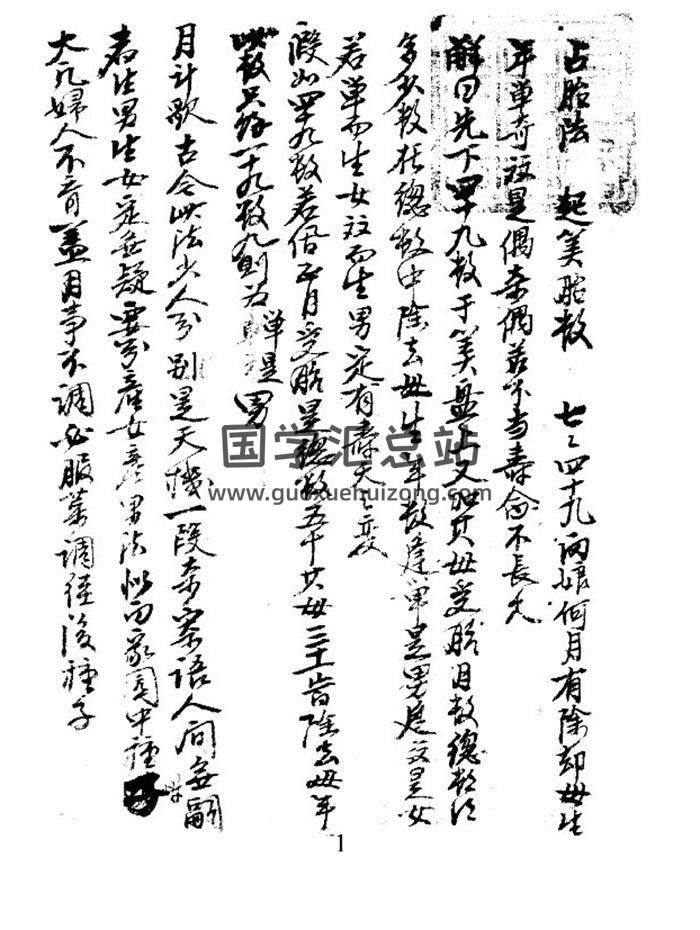 占胎法 起筭胎数 七七四十九 问娘何月有 除却母生
年单奇双是偶 奇偶若不当 寿命不长久
解曰先下四十九数于筭盘上又加其母受胎月数總数
多少数在總数中除去母生年数逢单是男逢双是女
若单而生女双而生男定有寿夭之
假如四十九数若個正月受胎是總数五十其母三十一皆除去母年
数只餘一十九数九則为单是男
月计歌 古今此法少人 别是天機一段奇 寄语人间無嗣
者 生男生女定無疑 要 產女產男法 中種子
大凡婦人不育盖月事不调必服藥调經後種子
国学汇总站
www.guoxuehuizong.com
1